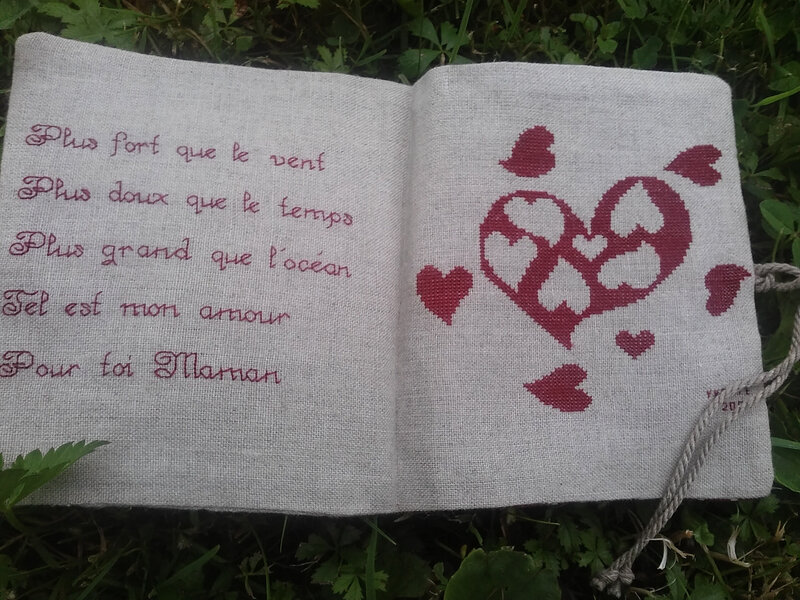 Plus fort que le vent
Plus doux que le temps
Plus grand que l'océan
Tel est mon amour
Pour toi Maman